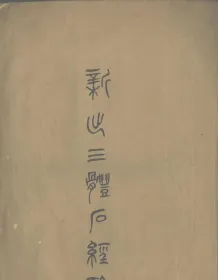 新出三體石經